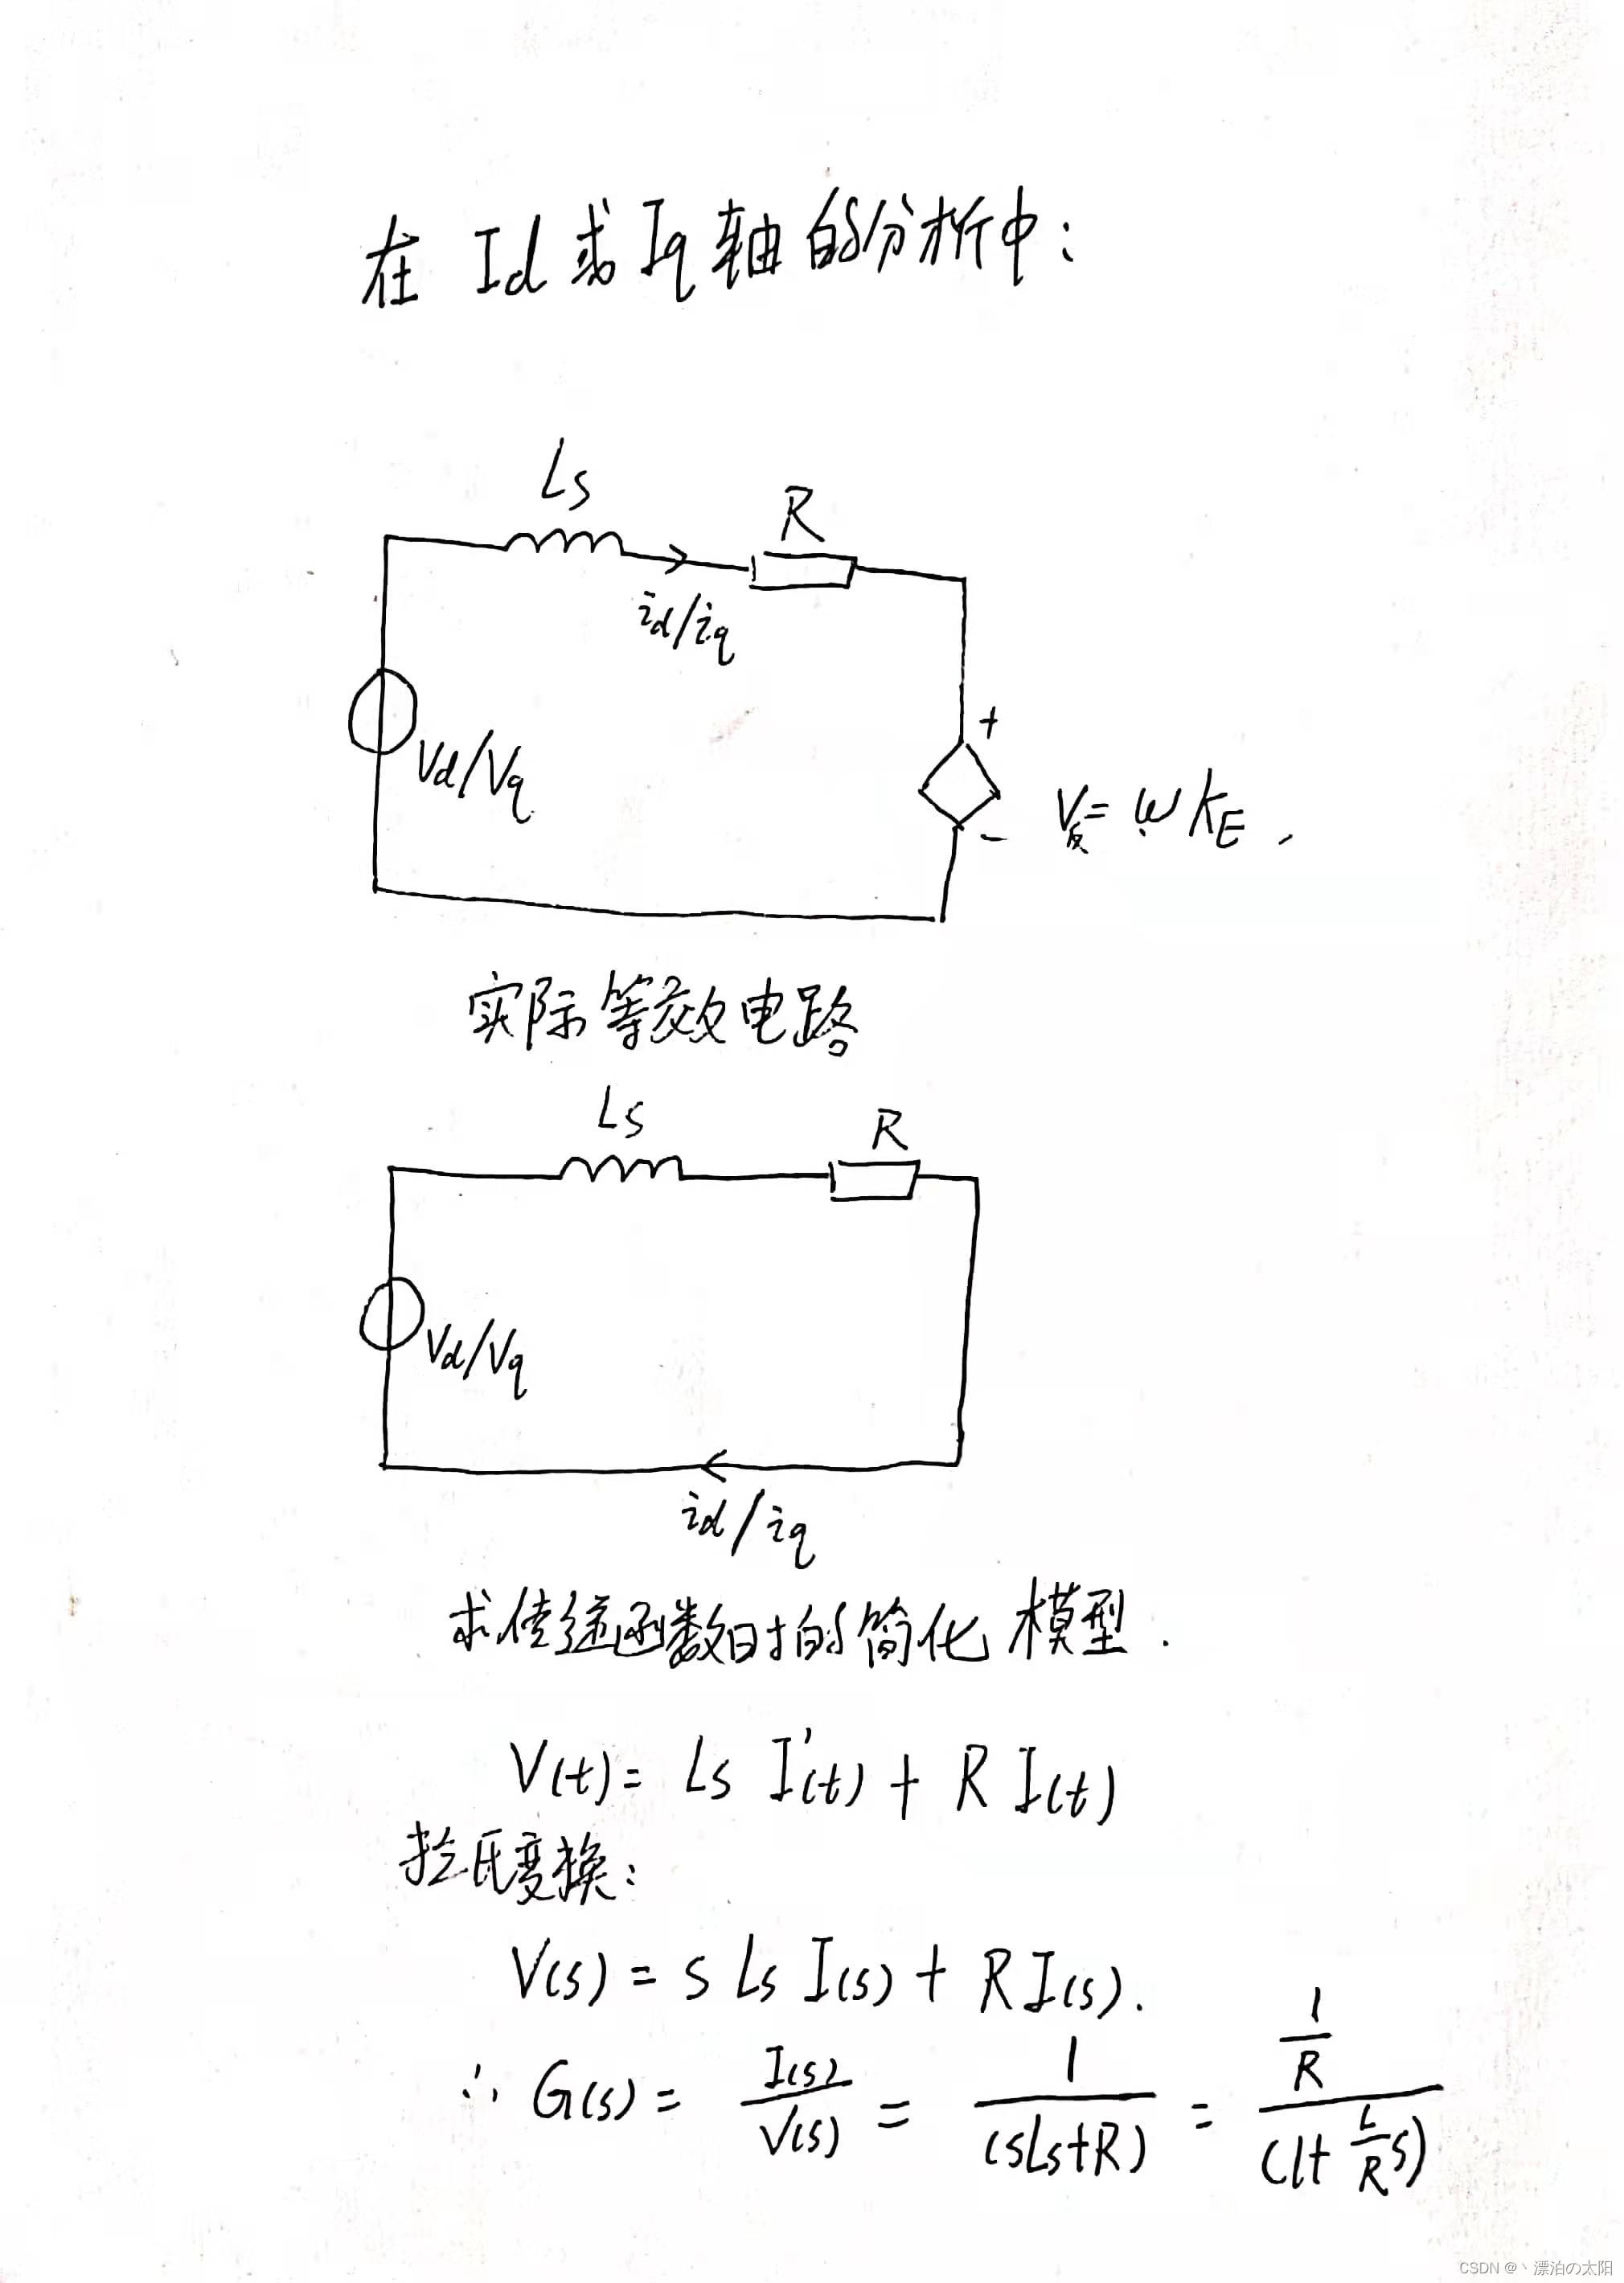 在 Id 或 Iq 轴的分析中：
Ls
R
id/iq
Vd/Vq
+
-
V反= ωKE ,
实际等效电路
Ls
R
Vd/Vq
id/iq
求传递函数时的简化模型.
V(t)= Ls I'(t) + R I(t)
拉氏变换:
V(s) = s Ls I(s) + R I(s).
∴ G(s) = I(s)/V(s) = 1/(sLs+R) = (1/R)/(1+ L/R s)
CSDN @丶漂泊の太阳